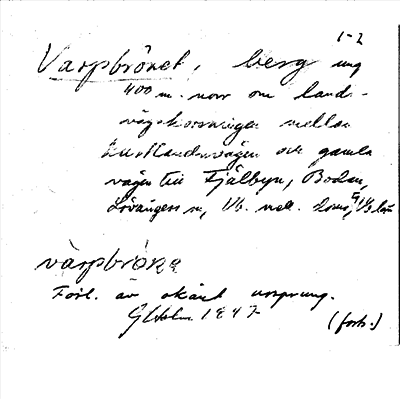 1-2
Varpbröket, berg ung
400 m. norr om lands-
vägskorsningen mellan
kustlandsvägen och gamla
vägen till Fjälbyn, Bodan,
Lövångers sn, Vb.
varpbröka
Förl. av okänt ursprung.
1947
(forts.)